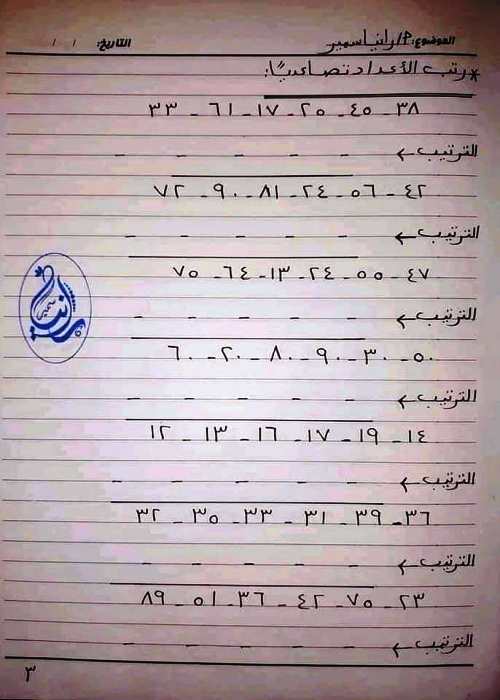 الموضوع: م/رانيا سمير التاريخ: / /
* رتب الأعداد تصاعديًا:
٣٨ - ٤٥ - ٢٥ - ١٧ - ٦١ - ٣٣
الترتيب ← - - - - -
٤٢ - ٥٦ - ٢٤ - ٨١ - ٩٠ - ٧٢
الترتيب ← - - - - -
٤٧ - ٥٥ - ٢٤ - ١٣ - ٦٤ - ٧٥
الترتيب ← - - - - -
٥٠ - ٣٠ - ٩٠ - ٨٠ - ٢٠ - ٦٠
الترتيب ← - - - - -
١٤ - ١٩ - ١٧ - ١٦ - ١٣ - ١٢
الترتيب ← - - - - -
٣٦ - ٣٩ - ٣١ - ٣٣ - ٣٥ - ٣٢
الترتيب ← - - - - -
٢٣ - ٧٥ - ٤٢ - ٣٦ - ٥١ - ٨٩
الترتيب ← - - - - -
٣
رانيا سمير